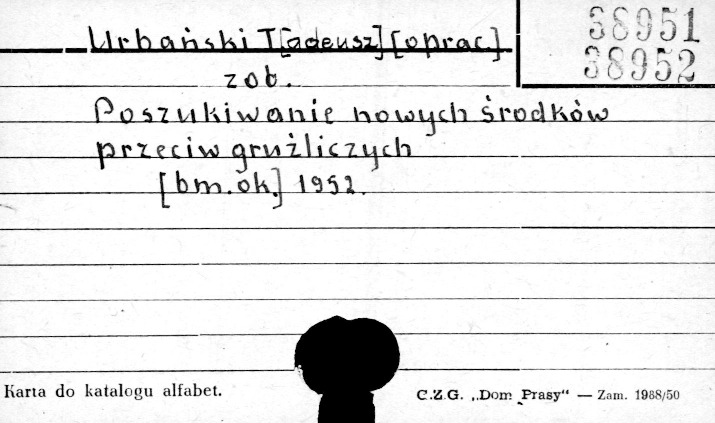 38951
38952
Urbański T[adeusz] [oprac.]
zob.
Poszukiwanie nowych środków
przeciw gruźliczych
[bm. ok.] 1952.
Karta do katalogu alfabet.
C.Z.G. „Dom Prasy“ — Zam. 1988/50